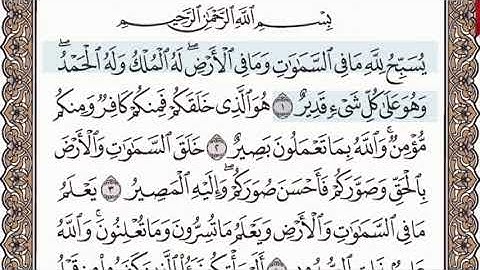 بِسْمِ ٱللَّهِ ٱلرَّحْمَٰنِ ٱلرَّحِيمِ
يُسَبِّحُ لِلَّهِ مَا فِي ٱلسَّمَٰوَٰتِ وَمَا فِي ٱلْأَرْضِۖ لَهُ ٱلْمُلْكُ وَلَهُ ٱلْحَمْدُۖ
وَهُوَ عَلَىٰ كُلِّ شَيْءٍ قَدِيرٌ ١ هُوَ ٱلَّذِي خَلَقَكُمْ فَمِنكُمْ كَافِرٌ وَمِنكُم
مُّؤْمِنٌۚ وَٱللَّهُ بِمَا تَعْمَلُونَ بَصِيرٌ ٢ خَلَقَ ٱلسَّمَٰوَٰتِ وَٱلْأَرْضَ
بِٱلْحَقِّ وَصَوَّرَكُمْ فَأَحْسَنَ صُوَرَكُمْۖ وَإِلَيْهِ ٱلْمَصِيرُ ٣ يَعْلَمُ
مَا فِي ٱلسَّمَٰوَٰتِ وَٱلْأَرْضِ وَيَعْلَمُ مَا تُسِرُّونَ وَمَا تُعْلِنُونَۚ وَٱللَّهُ